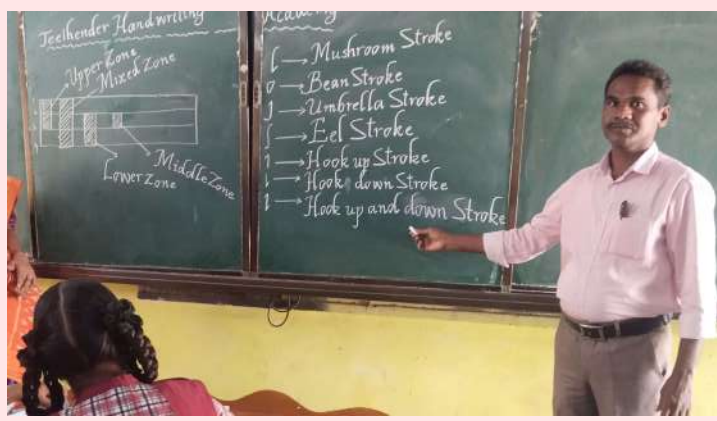 Jeelhender Handwriting Academy
Upper Zone
Mixed Zone
Lower Zone
Middle Zone
→ Mushroom Stroke
→ Bean Stroke
→ Umbrella Stroke
→ Eel Stroke
→ Hook up Stroke
→ Hook down Stroke
→ Hook up and down Stroke